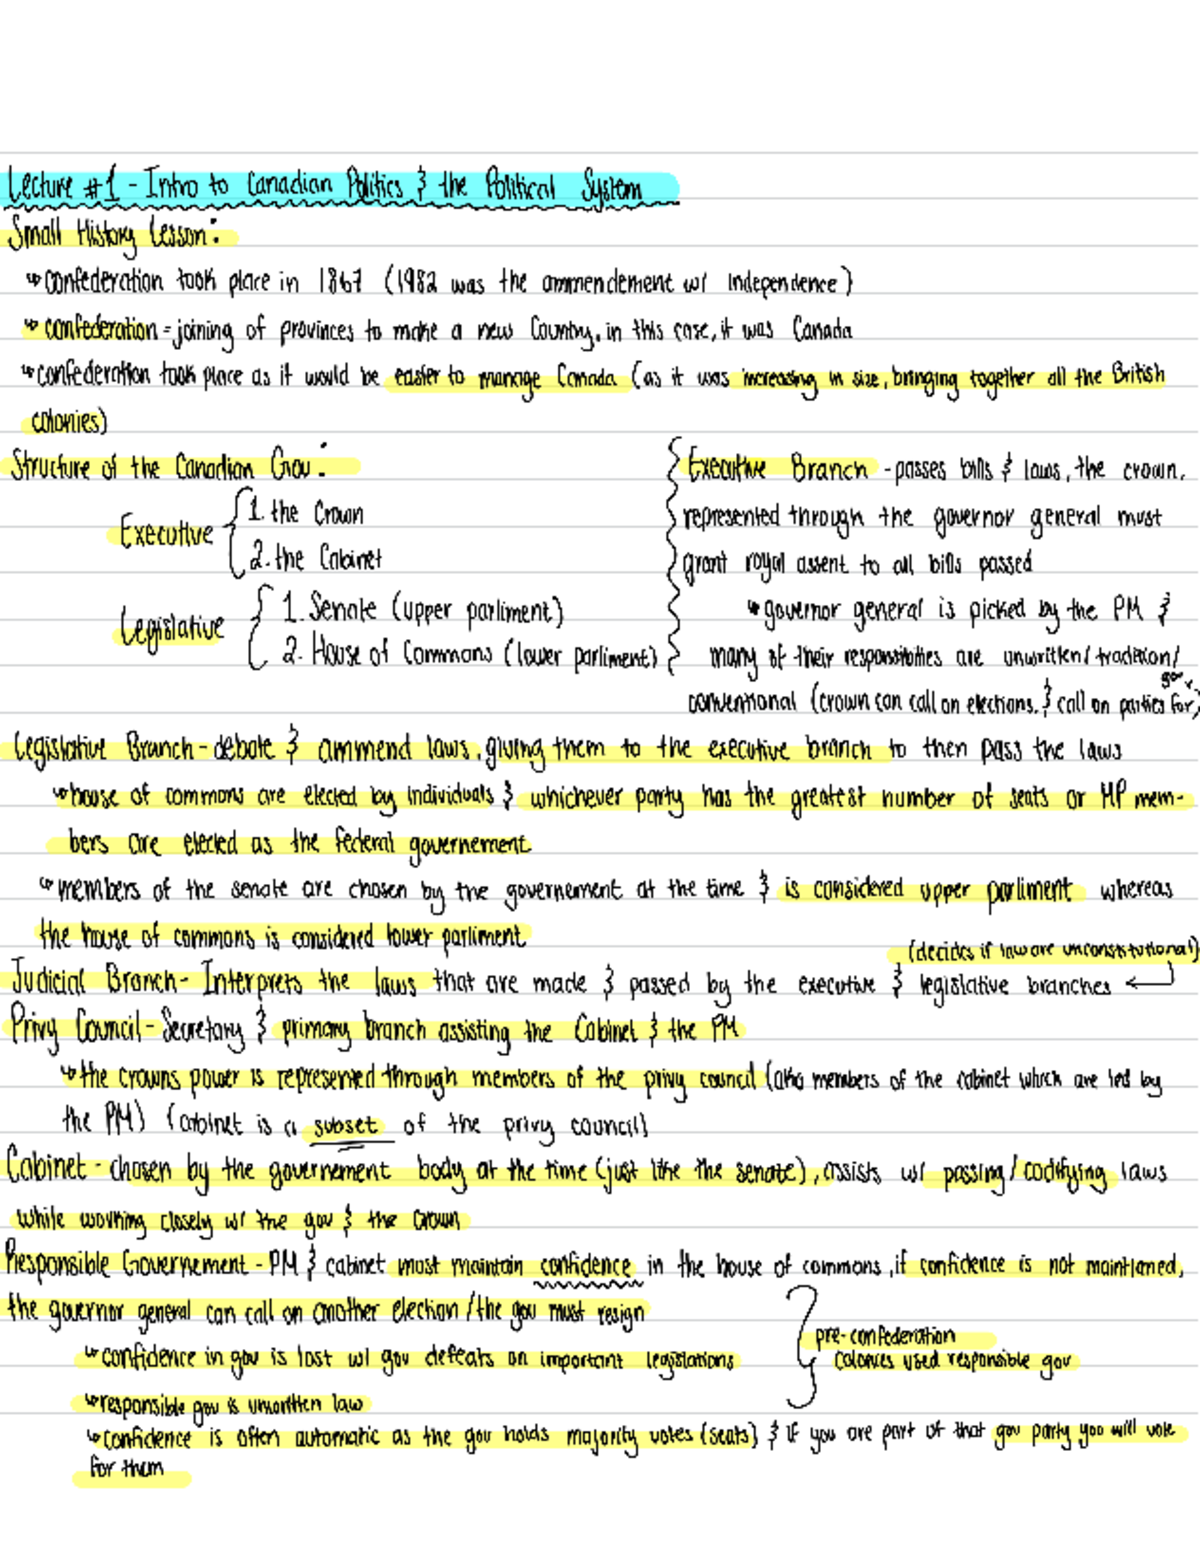 Lecture #1 - Intro to Canadian Politics & the Political System
Small History Lesson:
↪ confederation took place in 1867 (1982 was the ammendement w/ independence)
↪ confederation = joining of provinces to make a new country, in this case, it was Canada
↪ confederation took place as it would be easier to manage Canada (as it was increasing in size, bringing together all the British
colonies)
Structure of the Canadian Gov:
Executive { 1. the Crown
2. the Cabinet
Legislative { 1. Senate (upper parliment)
2. House of Commons (lower parliment)
Executive Branch - passes bills & laws, the crown,
represented through the governor general must
grant royal assent to all bills passed
↪ governor general is picked by the PM &
many of their responsibilities are unwritten/tradition/
conventional (crown can call on elections, & call on parties for gov)
Legislative Branch - debate & ammend laws, giving them to the executive branch to then pass the laws
↪ house of commons are elected by individuals & whichever party has the greatest number of seats or MP mem-
bers are elected as the federal governement
↪ members of the senate are chosen by the governement at the time & is considered upper parliment whereas
the house of commons is considered lower parliment
(decides if law are unconstitutional)
Judicial Branch - Interprets the laws that are made & passed by the executive & legislative branches ←
Privy Council - Secretary & primary branch assisting the Cabinet & the PM
↪ the crowns power is represented through members of the privy council (aka members of the cabinet which are led by
the PM) (cabinet is a subset of the privy council)
Cabinet - chosen by the governement body at the time (just like the senate), assists w/ passing/codifying laws
while working closely w/ the gov & the crown
Responsible Governement - PM & cabinet must maintain confidence in the house of commons, if confidence is not maintianed,
the governor general can call on another election/the gov must resign
↪ confidence in gov is lost w/ gov defeats on important legislations
pre-confederation
colonies used responsible gov
↪ responsible gov is unwritten law
↪ confidence is often automatic as the gov holds majority votes (seats) & if you are part of that gov party you will vote
for them